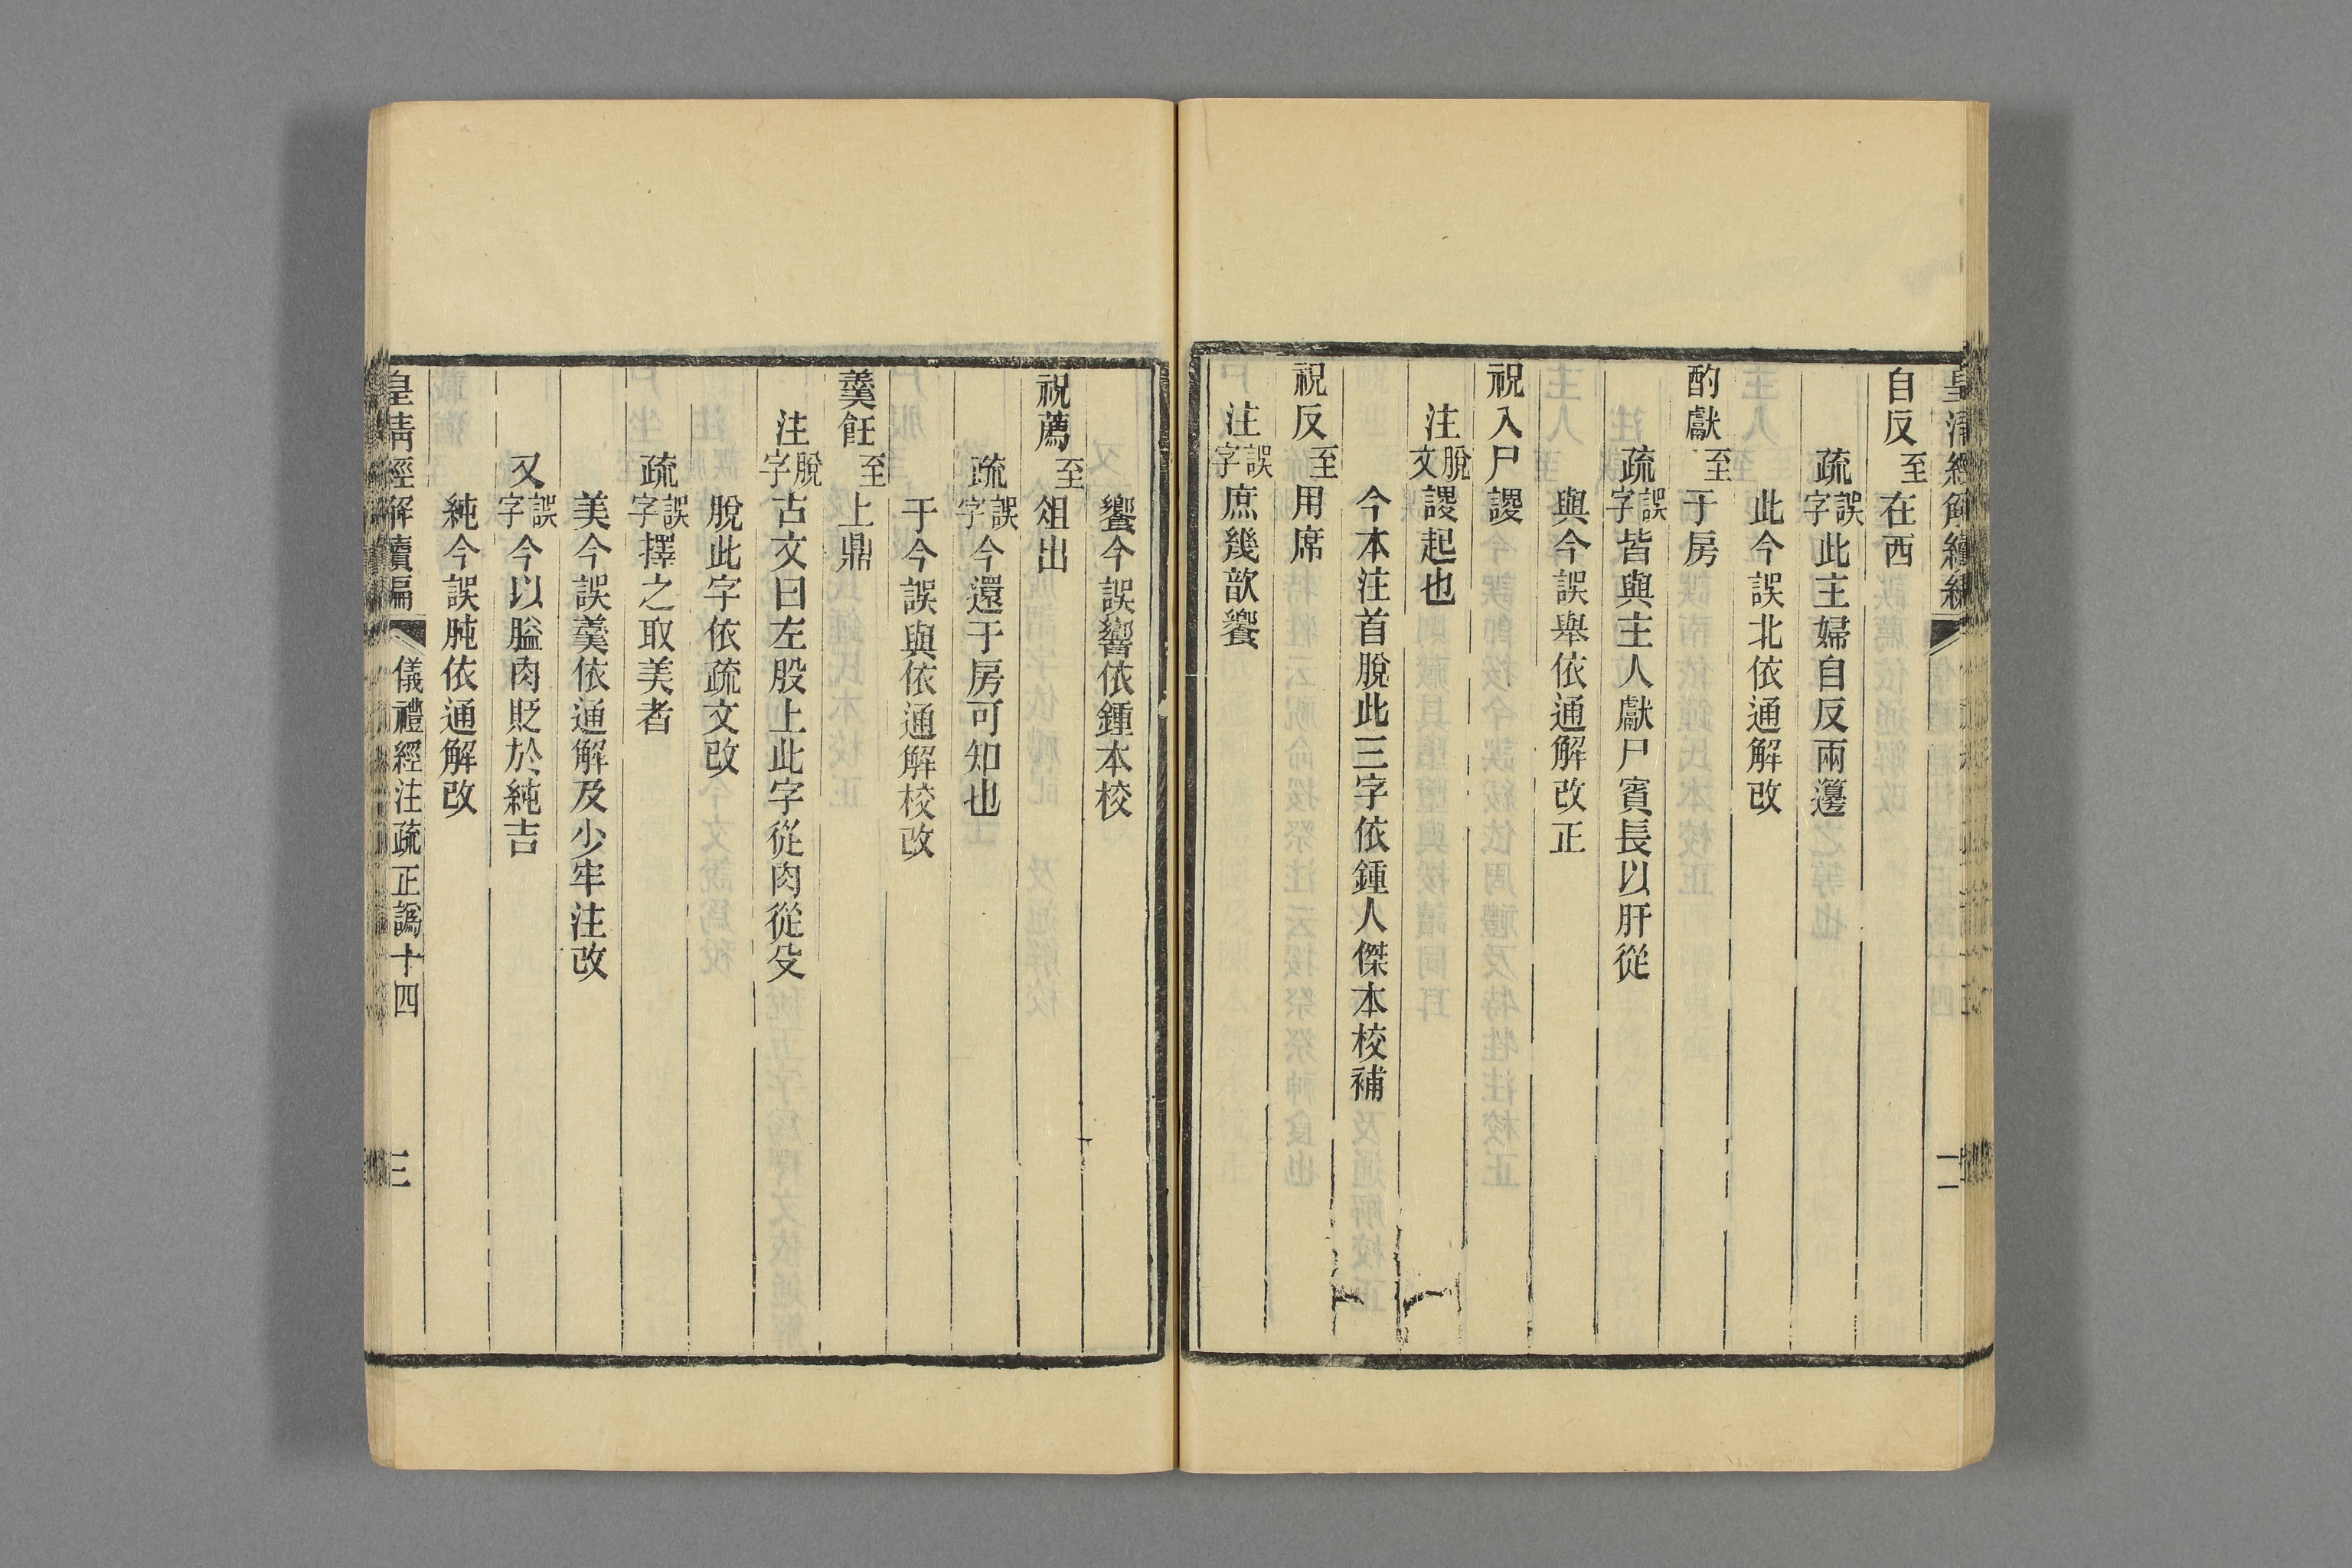 皇清經解續編
二
自反至在西
疏誤字此主婦自反兩籩
此今誤北依通解改
酌獻至于房
疏誤字皆與主人獻尸賓長以肝從
與今誤舉依通解改正
祝入尸謖
注脫文謖起也
今本注首脫此三字依鍾人傑本校補
祝反至用席
注誤字庶幾歆饗
饗今誤響依鍾本校
祝薦至俎出
疏誤字今還于房可知也
于今誤與依通解校改
羹飪至上鼎
注脫字古文曰左股上此字從肉從殳
脫此字依疏文改
疏誤字擇之取美者
美今誤羹依通解及少牢注改
又誤字今以膉肉貶於純吉
純今誤肫依通解改
皇清經解續編
儀禮經注疏正譌十四
三